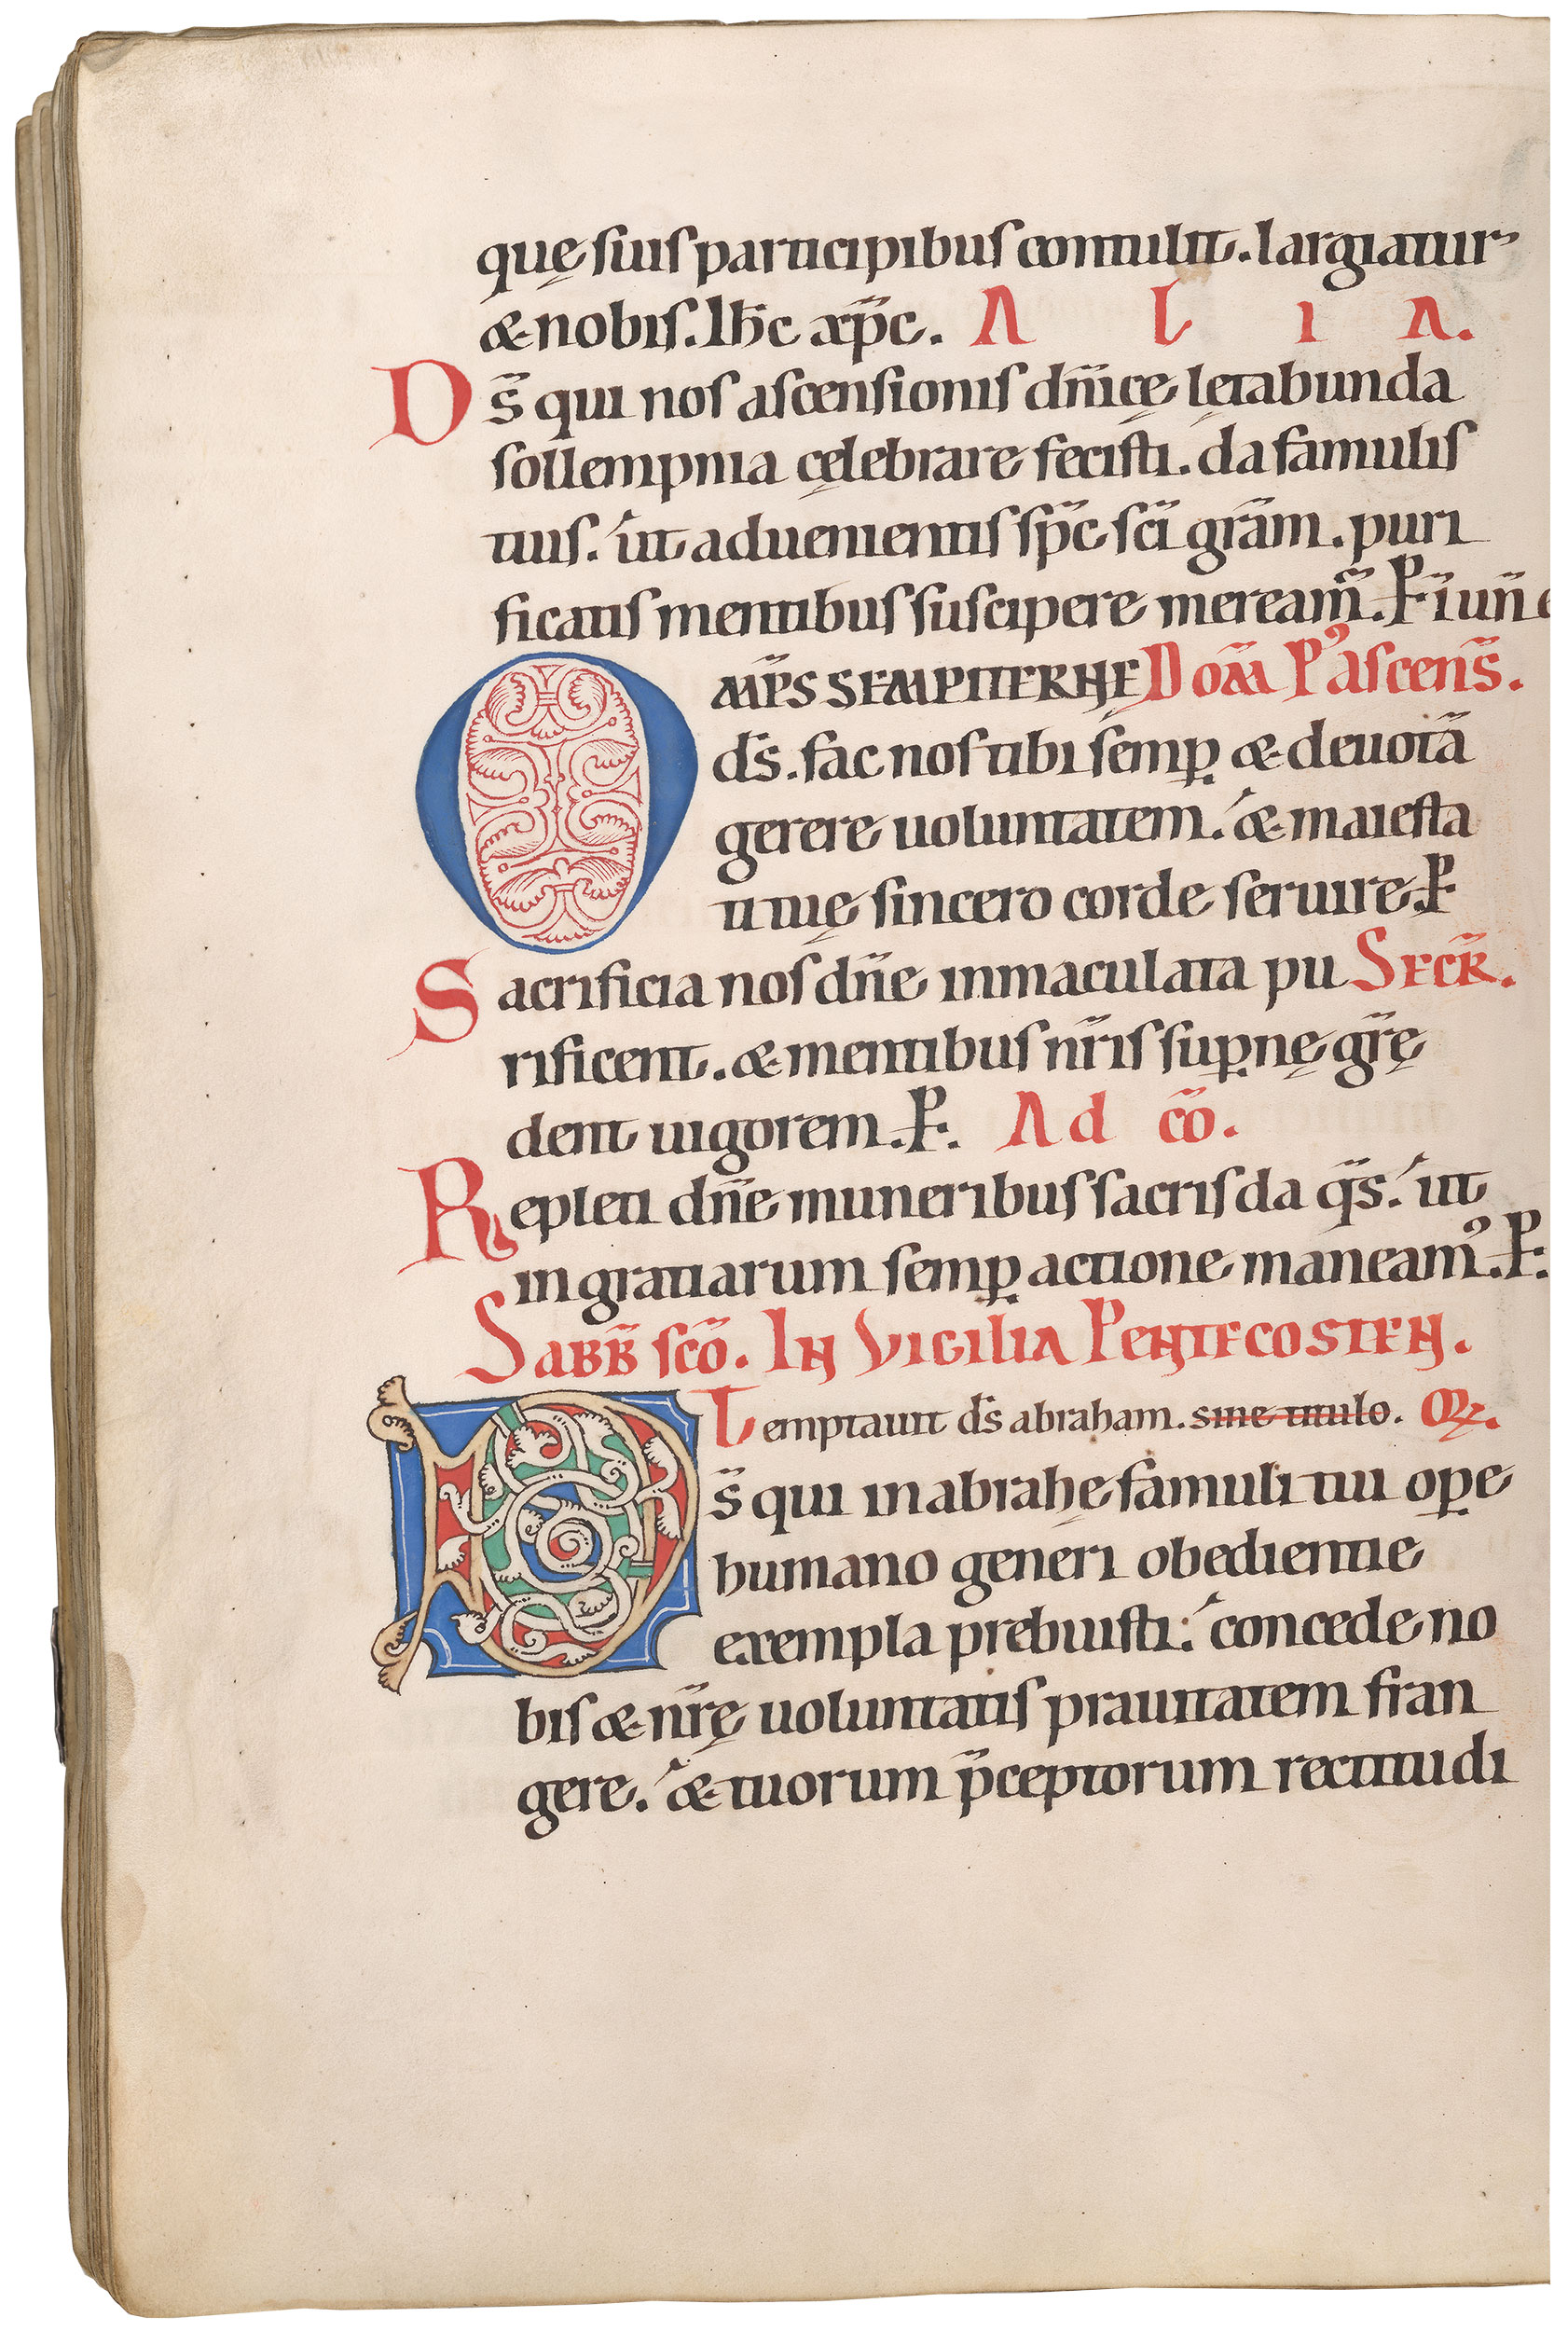 quę suis participibus contulit. largiatur
& nobis. Ih̅c xp̅c. A L I A.
Ds̅ qui nos ascensionis dn̅icę lętabunda
sollempnia cęlebrare fecisti. da famulis
tuis. ut aduenientis sp̅c sc̅i gr̅am. puri
ficatis mentibus suscipere meream̅. P. i un̅
OMP̅S SEMPITERNE Dom̅ P' ascens̅.
ds̅. fac nos tibi semꝑ & deuotā
gerere uoluntatem. & maiesta
ti tuę sincero corde seruire. P
Sacrificia nos dn̅e inmaculata pu SECR̅.
rificent. & mentibus nr̅is suꝑnę gr̅ę
dent uigorem. P. Ad co̅.
Repleti dn̅e muneribus sacris da qs̅. ut
in gratiarum semꝑ actione maneam'. P.
Sabb̅ sc̅o. IN VIGILIA PENTECOSTEN.
Temptauit ds̅ abraham. sine titulo. OR̅.
Ds̅ qui in abrahę famuli tui oꝑe
humano generi obedientie
exempla prebuisti: concede no
bis & nr̅ę uoluntatis prauitatem fran
gere. & tuorum p̅ceptorum rectitudi